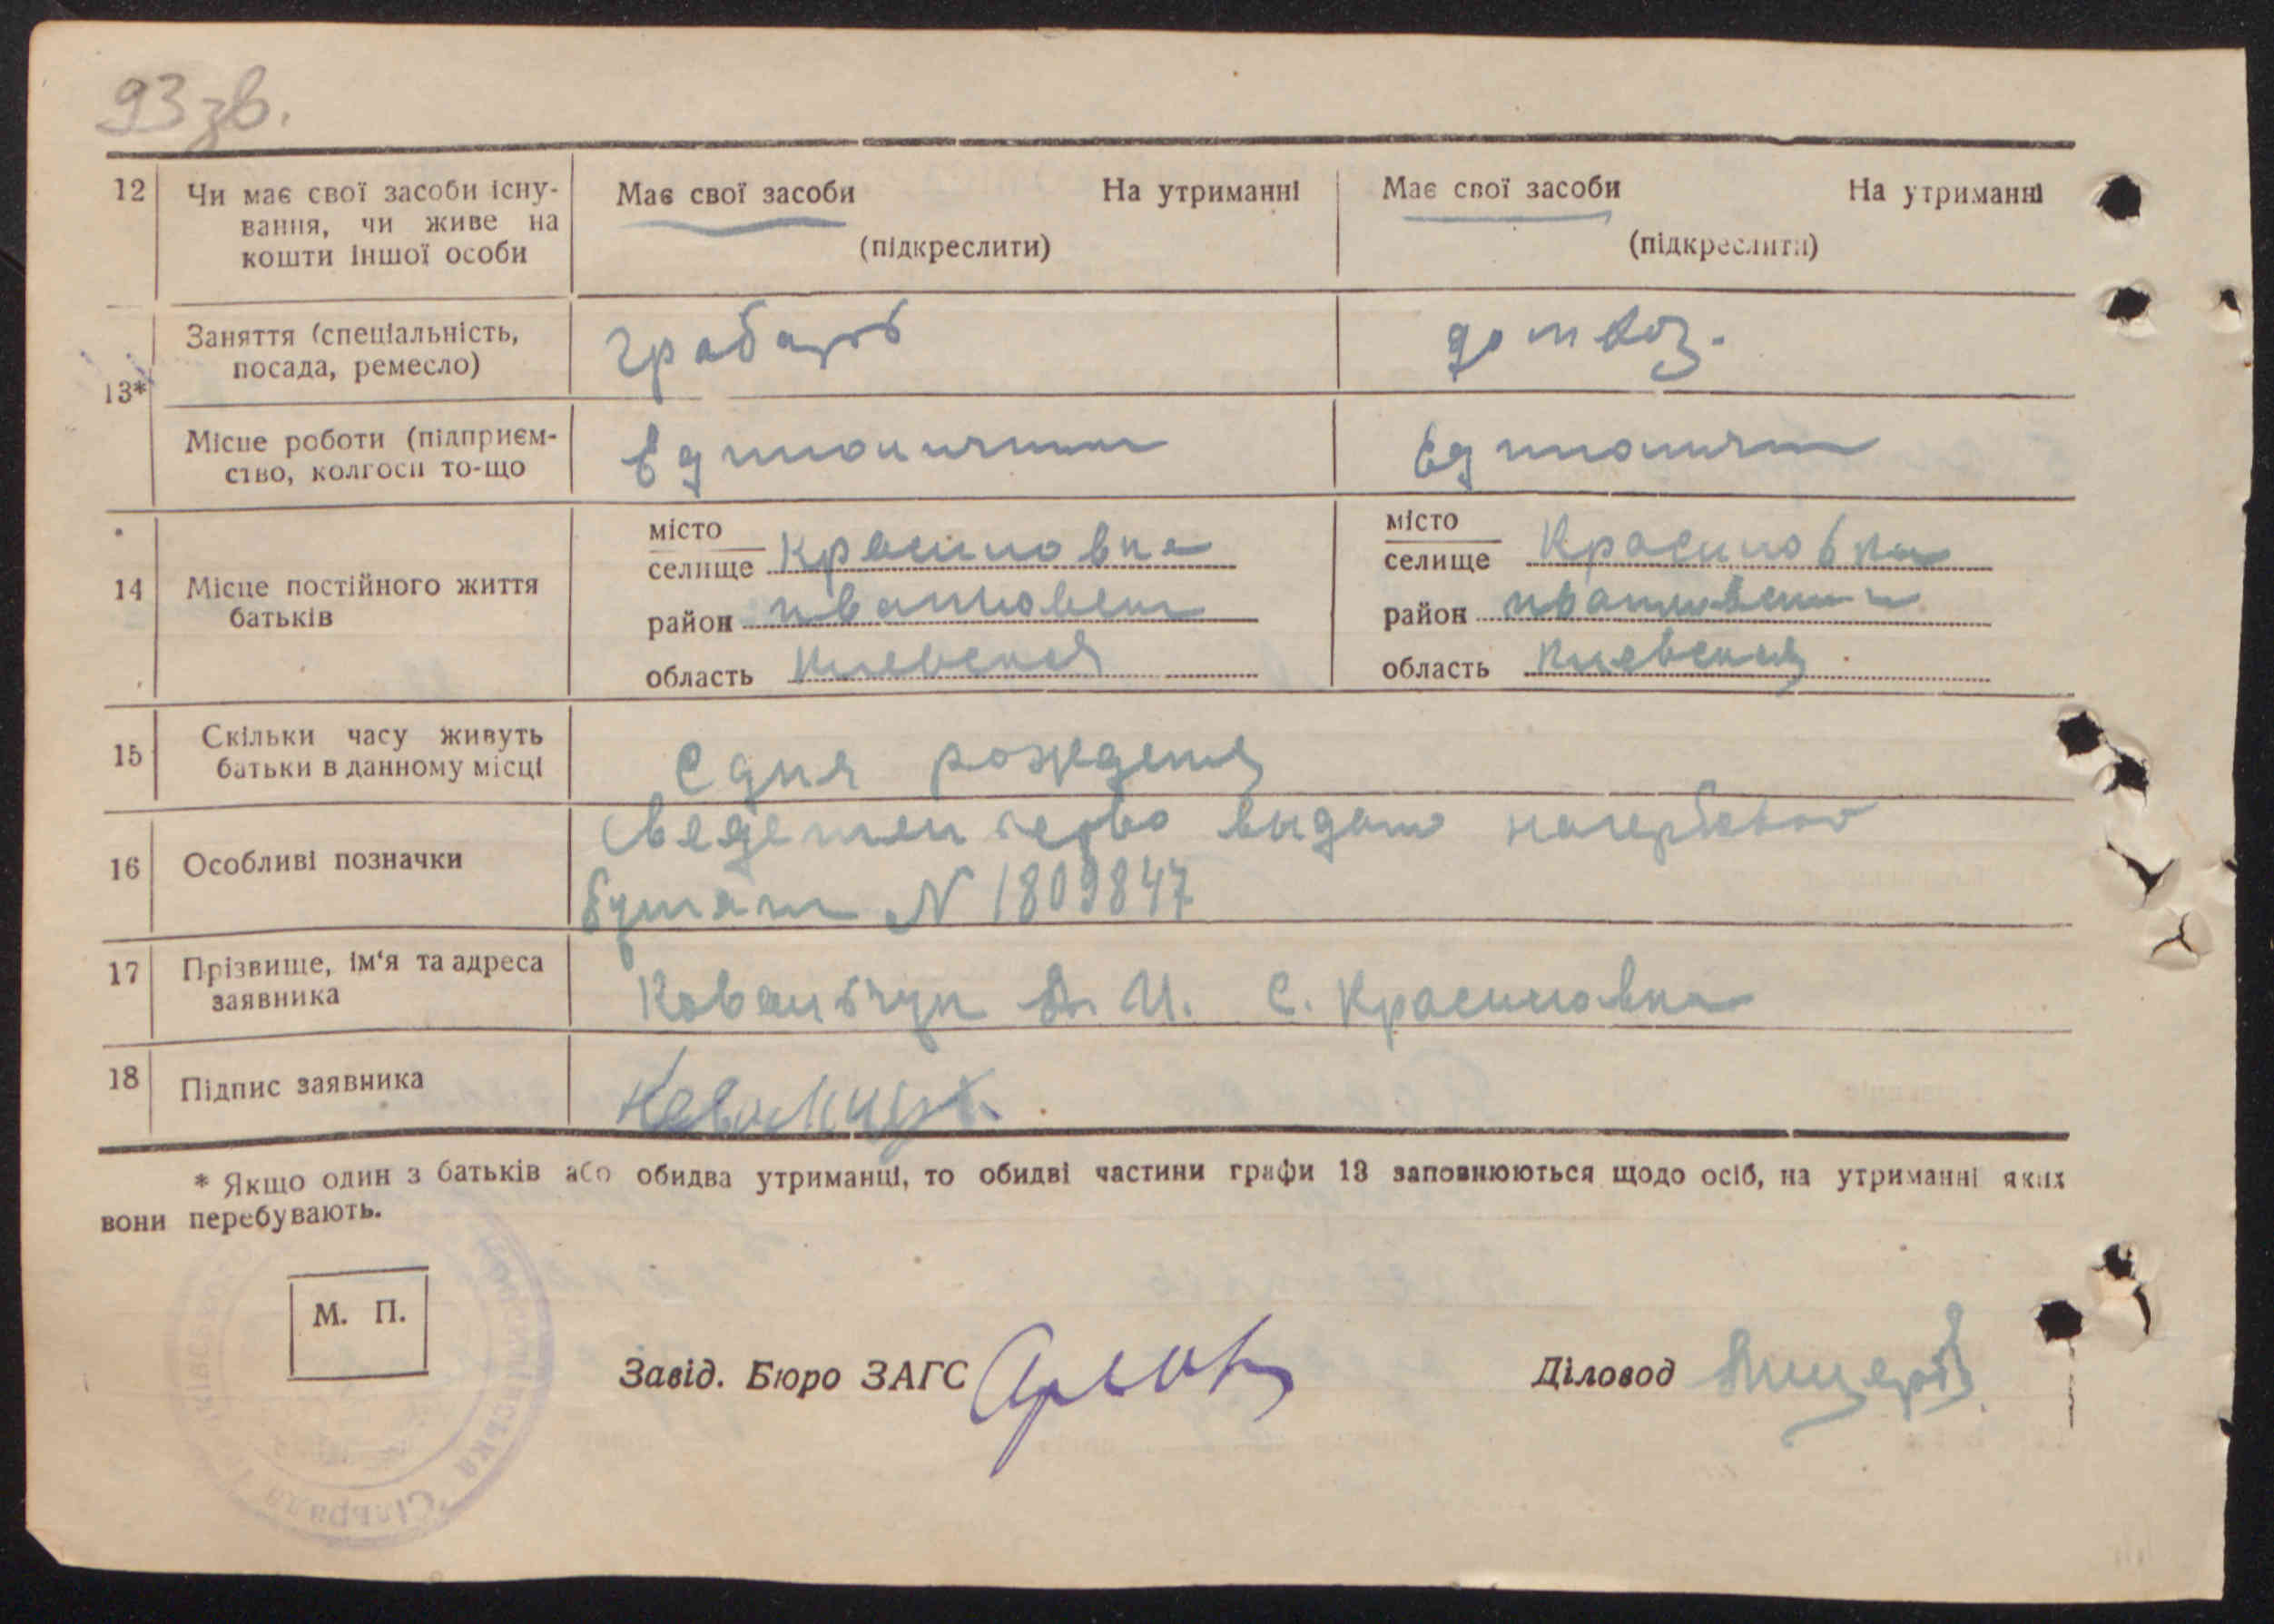 93 зв.
12 Чи має свої засоби існу- Має свої засоби На утриманні Має свої засоби На утриманні
вання, чи живе на
кошти іншої особи (підкреслити) (підкреслити)
13* Заняття (спеціальність, грабарь домхоз.
посада, ремесло)
Місце роботи (підприєм- Единоличник Единоличн
ство, колгосп то-що
14 Місце постійного життя
батьків
місто місто
селище Красиловка селище Красиловка
район район
область Киевская область Киевская
15 Скільки часу живуть С дня рождения
батьки в данному місці
16 Особливі позначки Сведетельство выдано на гербовой
бумаги N 1809847
17 Прізвище, ім'я та адреса Ковальчук И. с. Красиловка
заявника
18 Підпис заявника
* Якщо один з батьків або обидва утриманці, то обидві частини графи 13 заповнюються щодо осіб, на утриманні яких
вони перебувають.
М. П.
Завід. Бюро ЗАГС Діловод
Сільрада